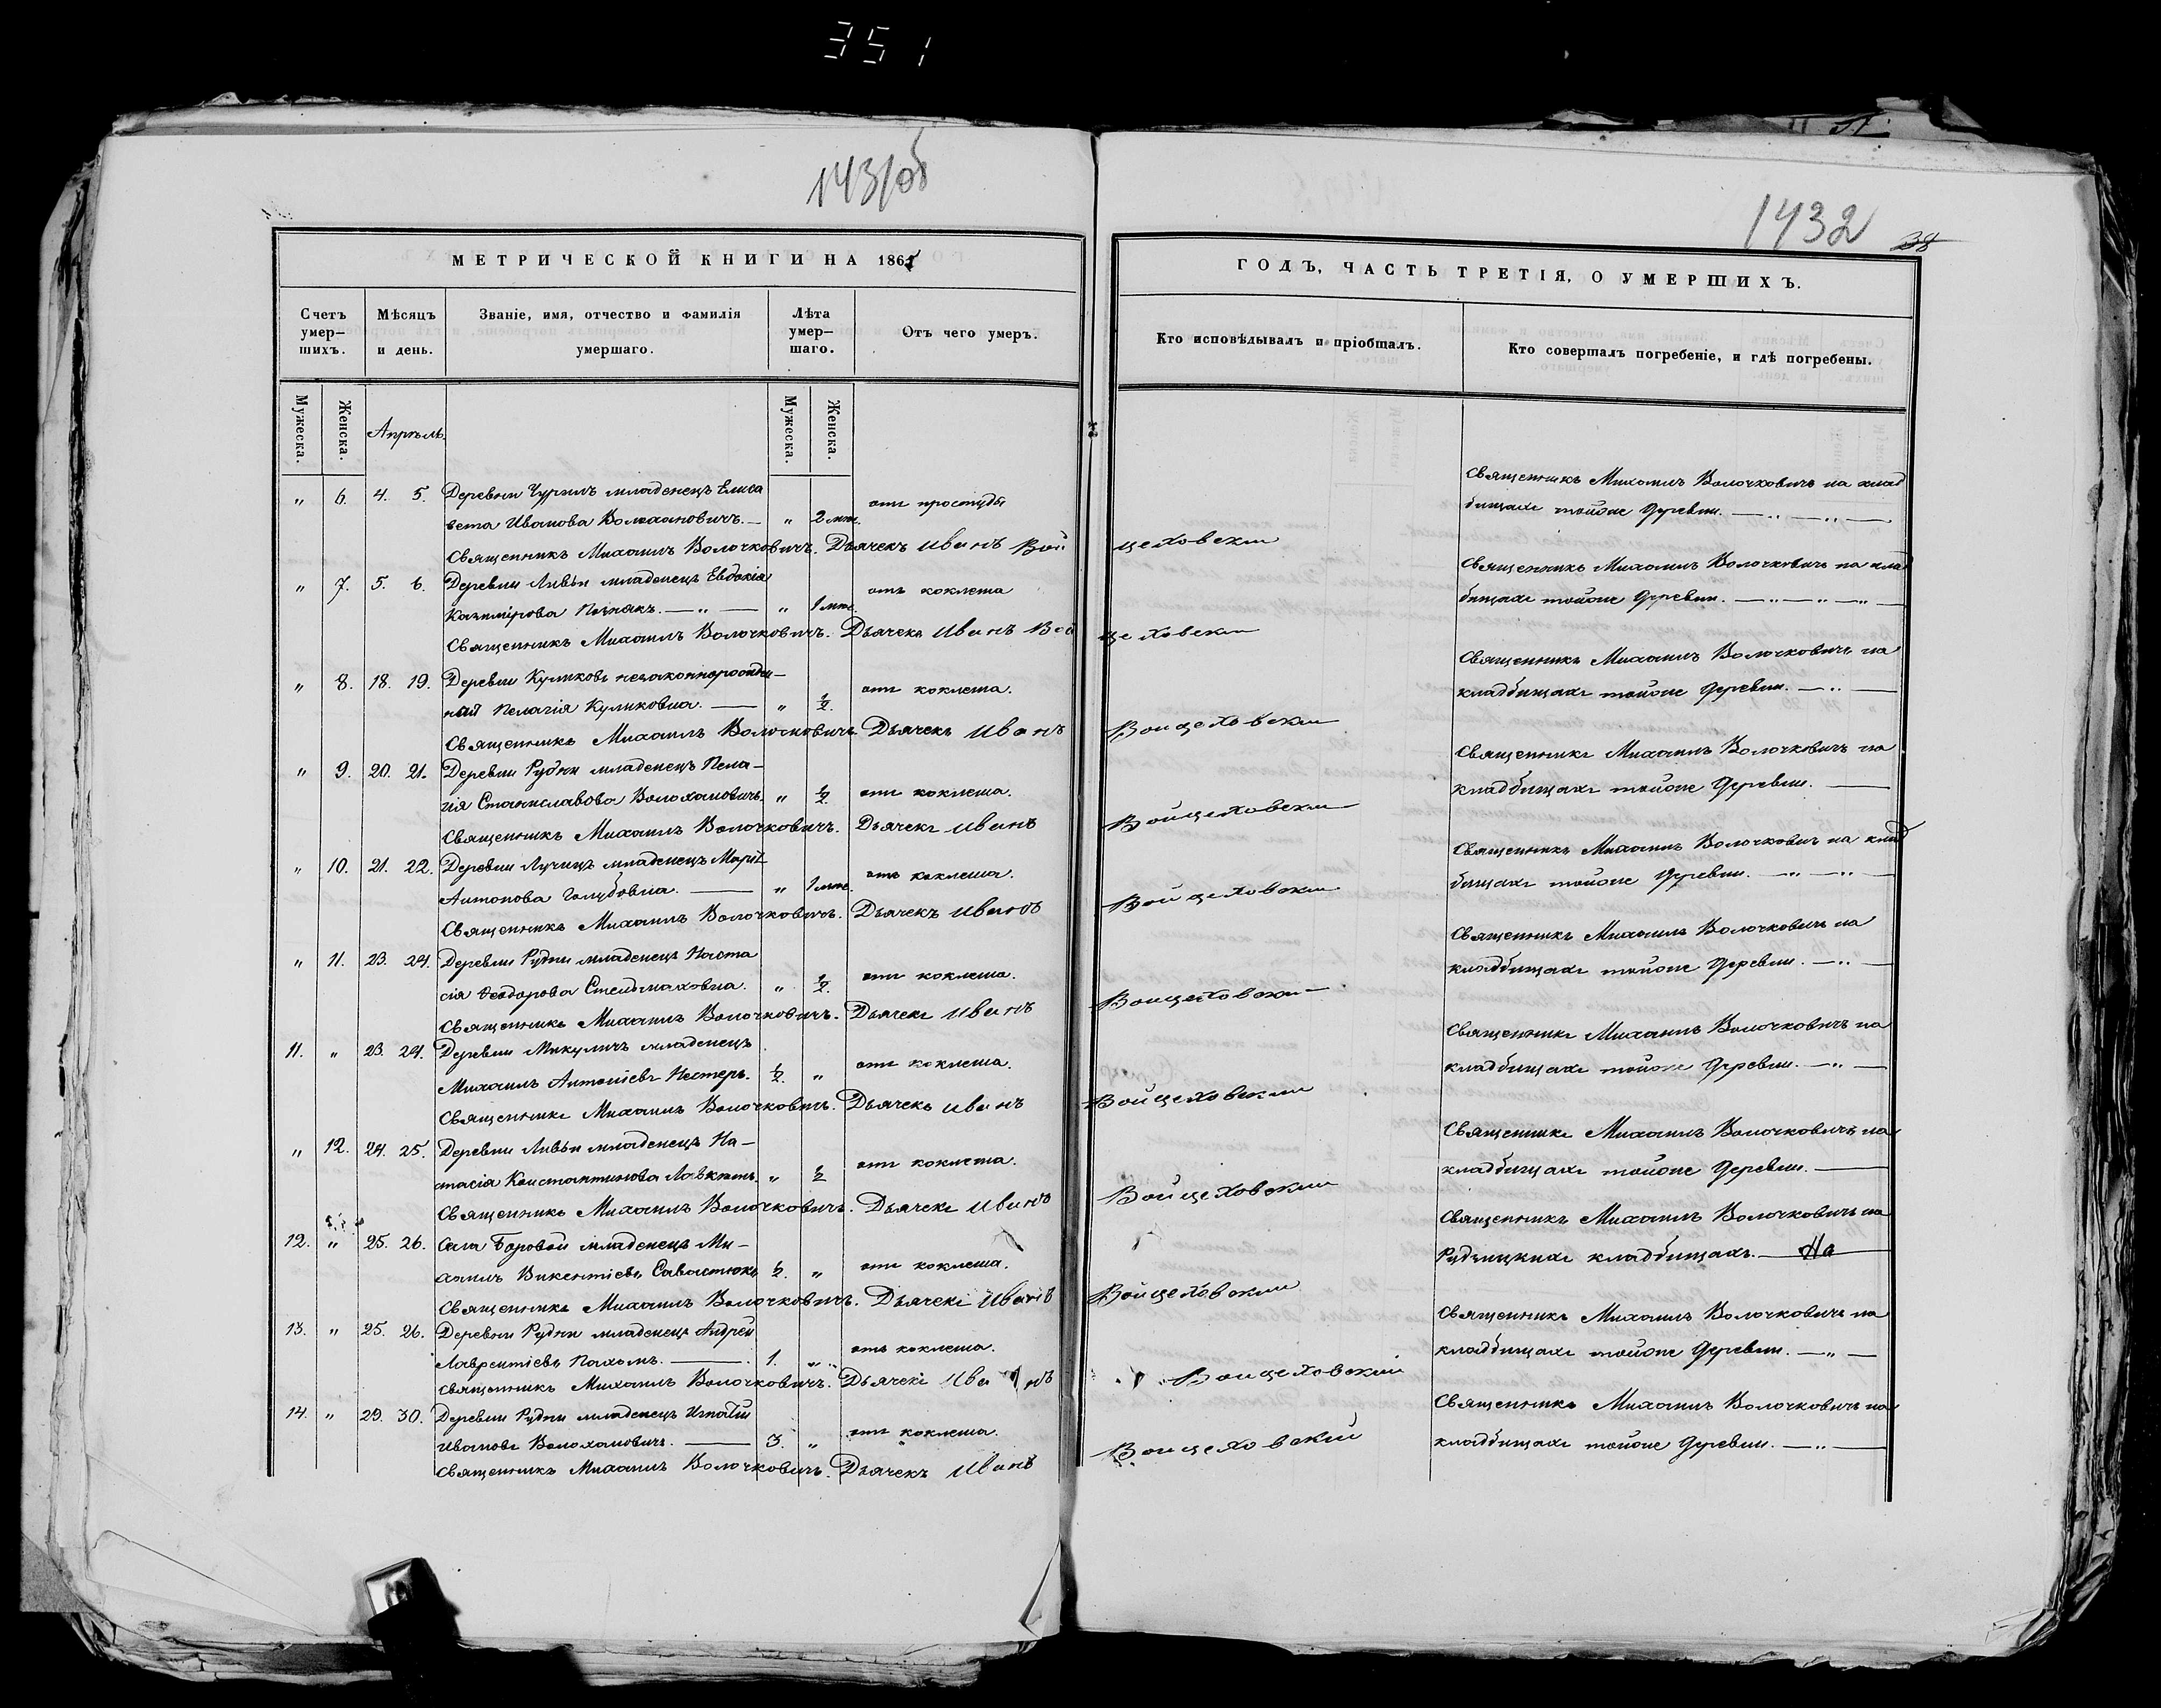 351
1431об
1432
38
МЕТРИЧЕСКОЙ КНИГИ НА 186
ГОДЪ, ЧАСТЬ ТРЕТІЯ, О УМЕРШИХЪ.
Счетъ умер—шихъ.
Мѣсяцъ и день.
Званіе, имя, отчество и фамилія умершаго.
Лѣта умер—шаго.
Отъ чего умеръ.
Кто исповѣдывалъ и пріобщалъ.
Кто совершалъ погребеніе, и гдѣ погребены.
Мужеска.
Женска.
Апрѣль.
Мужеска.
Женска.
„ 6. 4. 5. Деревни младенецъ Елиса
вета Иванова Волоханович. — „ 2 мѣс. отъ простуды
Священникъ Михаилъ Волочковичъ на клад
бищахъ тойже деревни. — „ — „ —
Священникъ Михаилъ Волочковичъ. Дьячекъ Иванъ Вой цеховскій
„ 7. 5. 6. Деревни младенецъ Евдокія
Казимірова Позняк. — „ — „ 1 мѣс. отъ коклюша
Священникъ Михаилъ Волочковичъ на клад
бищахъ тойже деревни. — „ — „ — „ —
Священникъ Михаилъ Волочковичъ. Дьячекъ Иванъ Вой цеховскій
„ 8. 18. 19. Деревни Куликовъ незаконнорожден—
ная Пелагія Куликовна. — „ ½. отъ коклюша.
Священникъ Михаилъ Волочковичъ на
кладбищахъ тойже деревни. — „ —
Священникъ Михаилъ Волочковичъ. Дьячекъ Иванъ Войцеховскій
„ 9. 20. 21. Деревни Рудни младенецъ Пела—
гія Станиславова Волохановичъ. „ ½. отъ коклюша.
Священникъ Михаилъ Волочковичъ на
кладбищахъ тойже деревни. —
Священникъ Михаилъ Волочковичъ. Дьячекъ Иванъ Войцеховскій
„ 10. 21. 22. Деревни Лучицъ младенецъ Марія
Антонова Голубовна. — „ 1 мѣс. отъ коклюша.
Священникъ Михаилъ Волочковичъ на клад
бищахъ тойже деревни. — „ — „ —
Священникъ Михаилъ Волочковичъ. Дьячекъ Иванъ Войцеховскій
„ 11. 23. 24. Деревни Рудни младенецъ Наста
сія Ѳеодорова Стельмаховна. „ ½. отъ коклюша.
Священникъ Михаилъ Волочковичъ на
кладбищахъ тойже деревни. — „ —
Священникъ Михаилъ Волочковичъ. Дьячекъ Иванъ Войцеховскій
11. „ 23. 24. Деревни Микуличъ младенецъ
Михаилъ Антоніевъ Нестеръ. ½. „ отъ коклюша.
Священникъ Михаилъ Волочковичъ на
кладбищахъ тойже деревни. — „ —
Священникъ Михаилъ Волочковичъ. Дьячекъ Иванъ Войцеховскій
„ 12. 24. 25. Деревни младенецъ На—
стасія Константинова „ ½ отъ коклюша.
Священникъ Михаилъ Волочковичъ на
кладбищахъ тойже деревни. —
Священникъ Михаилъ Волочковичъ. Дьячекъ Иванъ Войцеховскій
12. „ 25. 26. Села Боровой младенецъ Ми—
хаилъ Викентіевъ Савастюкъ ½. „ отъ коклюша.
Священникъ Михаилъ Волочковичъ на
кладбищахъ. —
Священникъ Михаилъ Волочковичъ. Дьячекъ Иванъ Войцеховскій
13. „ 25. 26. Деревни Рудни младенецъ Андрей
Лаврентіевъ Пахомъ. — 1. „ отъ коклюша.
Священникъ Михаилъ Волочковичъ на
кладбищахъ тойже деревни. — „ —
Священникъ Михаилъ Волочковичъ. Дьячекъ Иванъ Войцеховскій
14. „ 29. 30. Деревни Рудни младенецъ Игнатій
Ивановъ Волохановичъ. — 3. „ отъ коклюша.
Священникъ Михаилъ Волочковичъ на
кладбищахъ тойже деревни. — „ —
Священникъ Михаилъ Волочковичъ. Дьячекъ Иванъ Войцеховскій